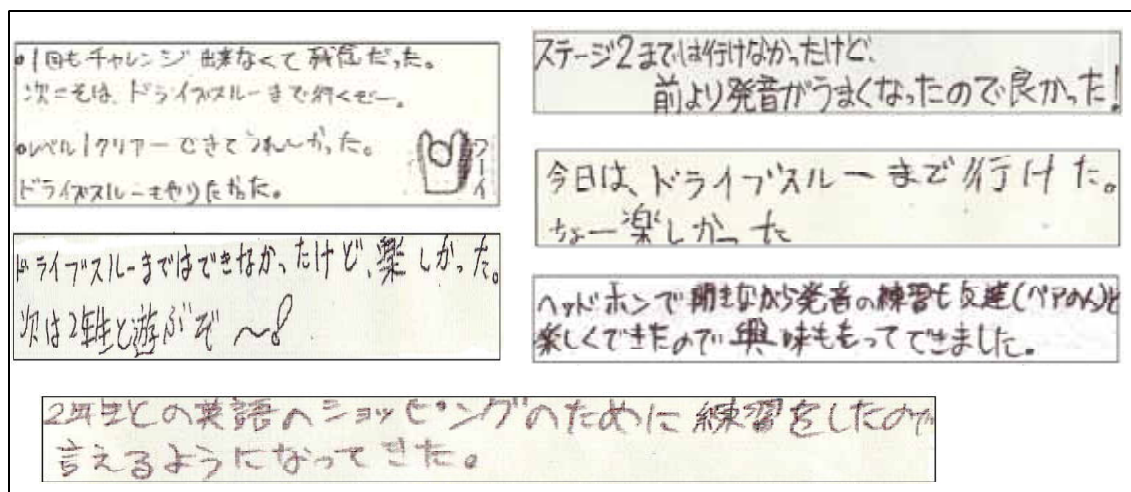 •1回もチャレンジ出来なくて残念だった。
次こそは、ドライブスルーまで行くぞー。
•レベル1クリアーできてうれしかった。
ドライブスルーもやりたかった。
ワーイ
ドライブスルーまではできなかったけど、楽しかった。
次は2年生と遊ぶぞ〜!
ステージ2までは行けなかったけど、
前より発音がうまくなったので良かった!
今日は、ドライブスルーまで行けた。
ちょー楽しかった
ヘッドホンで聞きながら発音の練習も友達(ペアの人)と
楽しくできたので興味ももってできました。
2年生との英語のショッピングのために練習をしたので
言えるようになってきた。